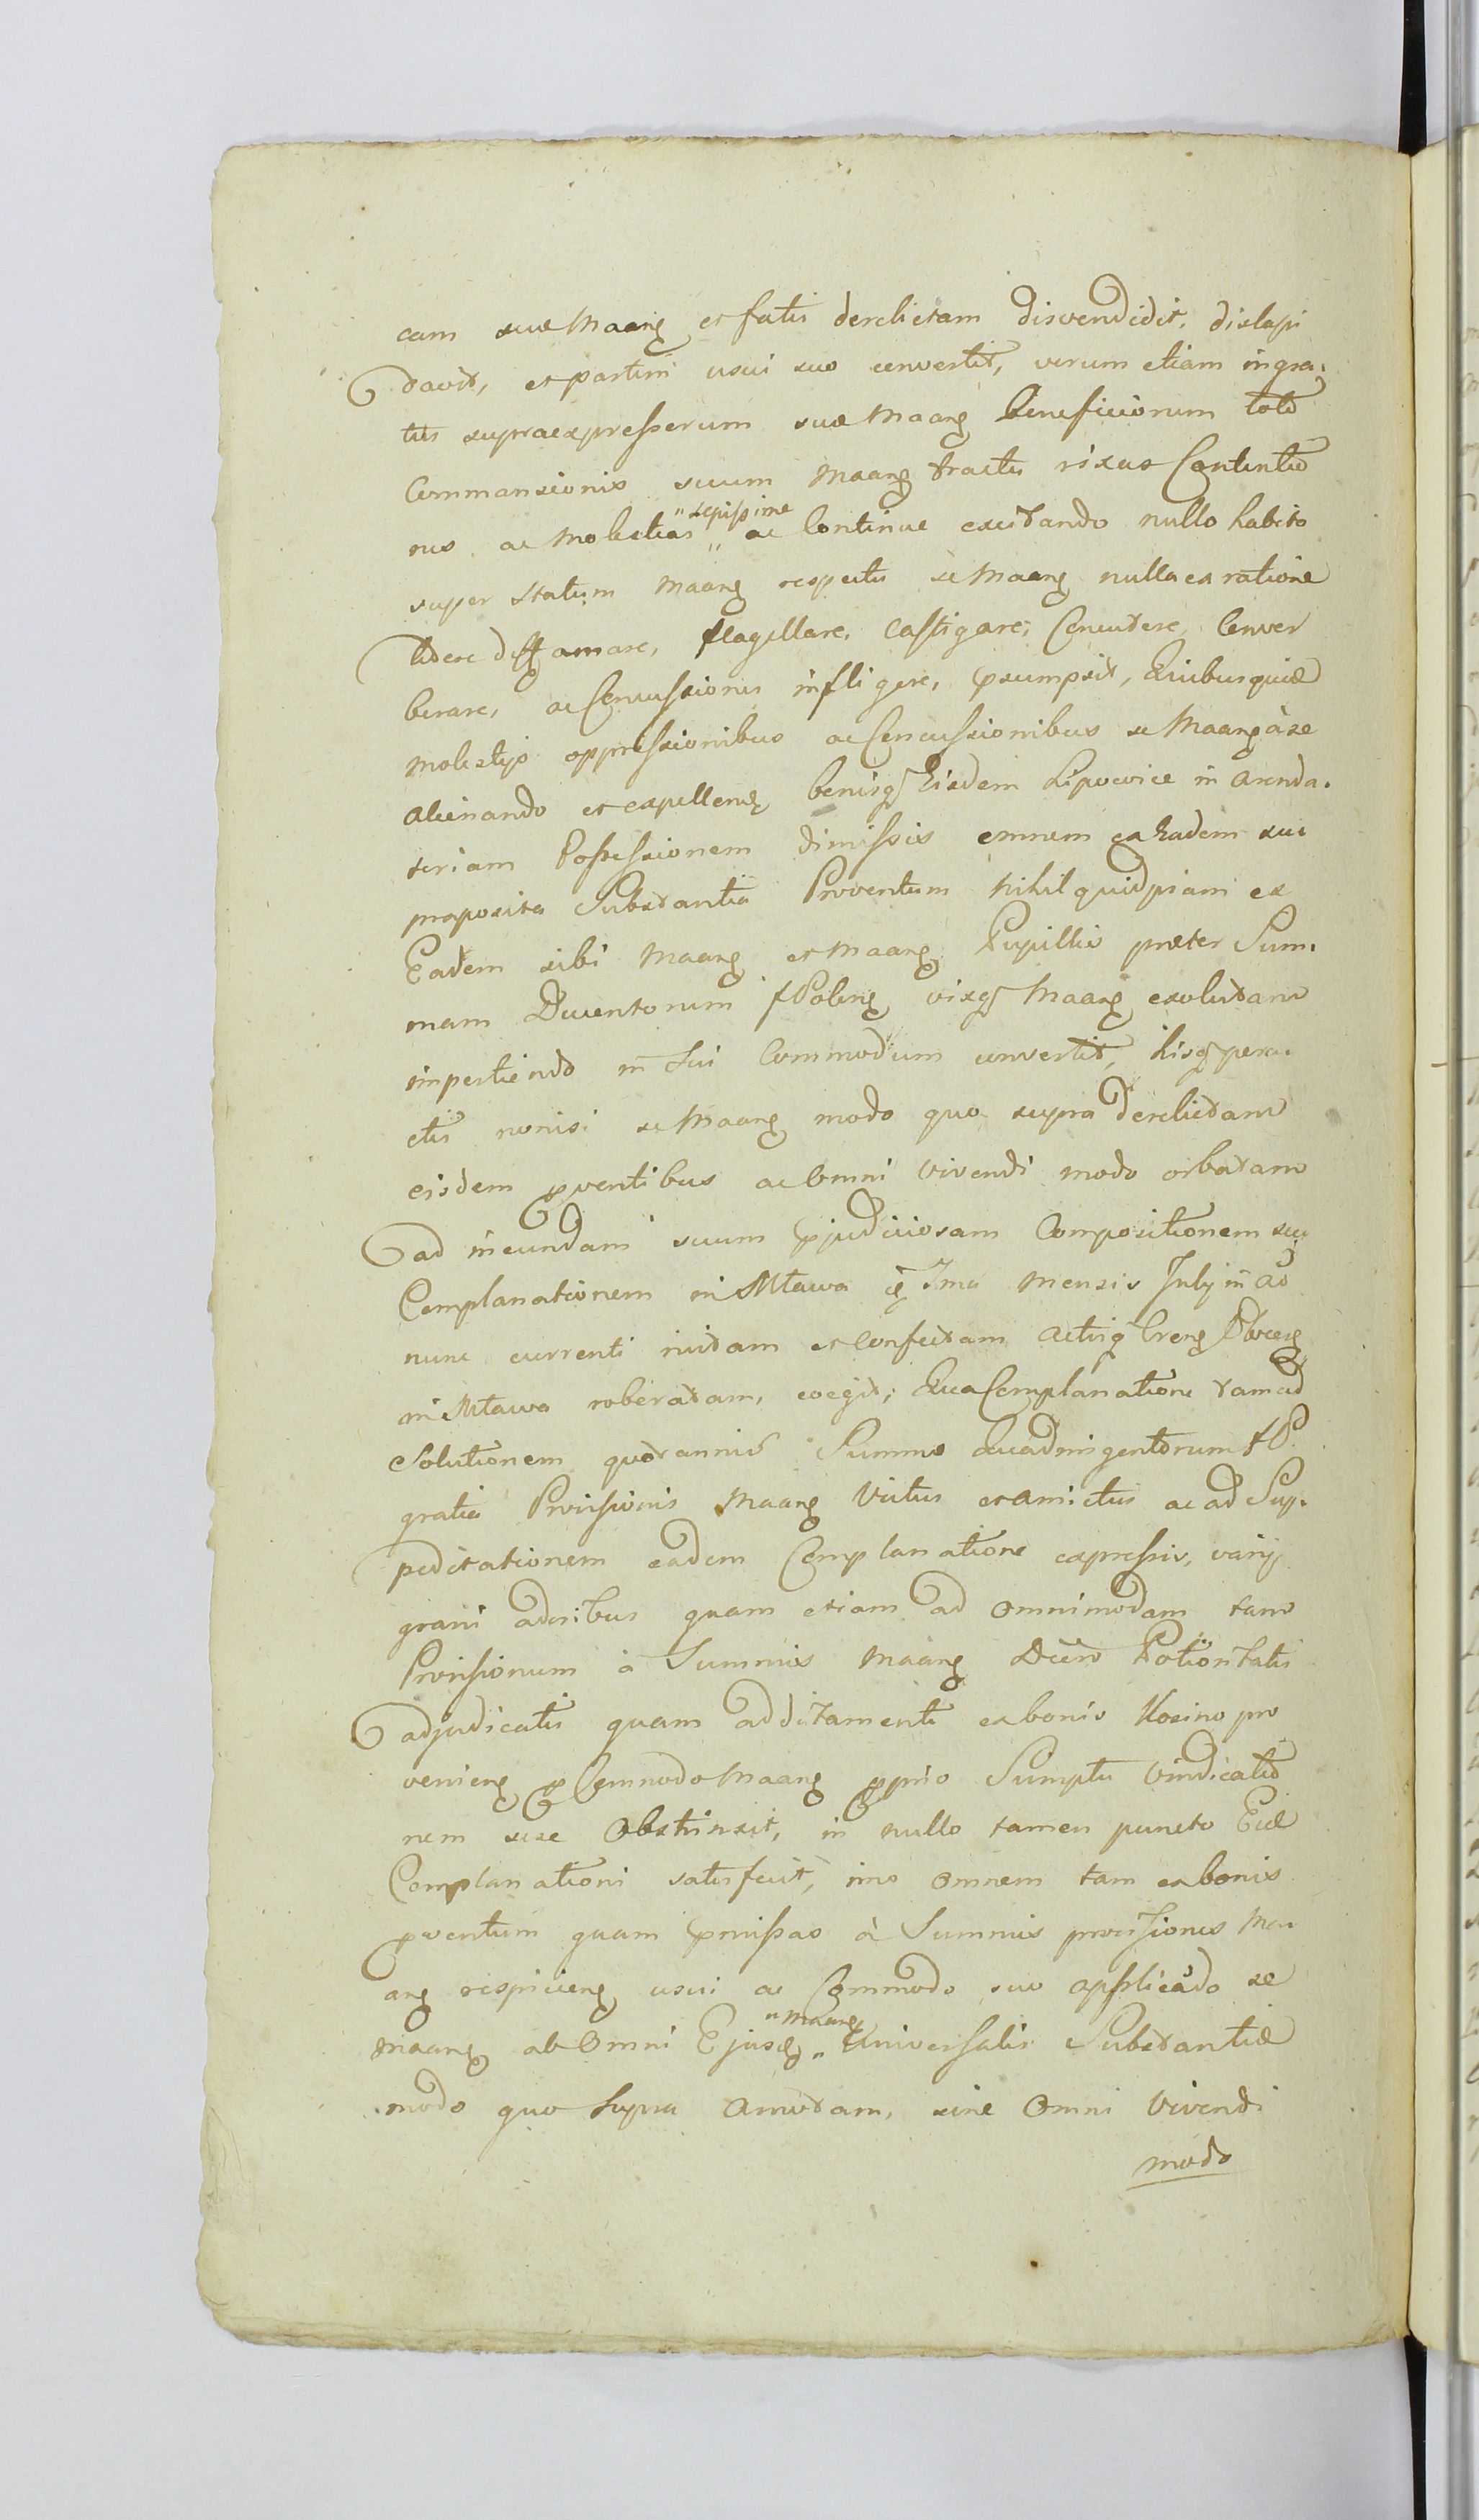 cam suæ Maang et fatis derelictam disvendidit, dislapi
davit, et partim usui suo convertit, verum etiam ingra:
tus supraexpressorum suæ Maang beneficiorum toto
Commansionis suum Maang tractu rixas Contentio
nes ac Molestias "sepissime" ac Continue excitando nullo habito
super statum Maang respectu se Maang nulla ea ratione
lædere deffamare, flagellare, Castigare, Concutere Conver
berare, ac Concussiones infligere, præsumpsit, Quibusquidē
molestijs oppressionibus ac Concussionibus se Maang à se
alienando et expellend bonisq Eisdem Lipowice in arenda.
toriam Possessionem dimissis omnem ex Eadem sui
proposita Substantia Proventum Nihil quidpiam ex
Eadem sibi Maang et Maang Pupillis præter Sum.
mam Ducentorum fPoleng vixq Maang exolutam
impertiendo in Sui Commodum convertit, hisq pera.
ctis nonisi se Maang modo quo supra derelictam
eisdem proventibus ac Omni Vivendi modo orbatam
ad ineundam suum præjudiciosam Compositionem seu
Complanationem in Mława 7ma Mensis July in aō
nunc currenti initam et Confectam actisq Creng
in Mławo roboratam, coegit, Qua Complanatione tam ad
Solutionem quotannis Summæ Quadringentorum fP.
gratia Provisionis Maang Victus et amictus ac ad Sup.
peditationem eadem Complanatione expressis, varij
grani quam etiam ad omnimodam tam
Provisionum à Summis Maang
adjudicatis quam additamenti ex bonis Kosino pro
venieng pro Commodo Maang proprio Sumptu Vindicatio
nem sese Obstrinxit, in nullo tamen puncto Eidē
Complanationi satisfecit, imo Omnem tam ex bonis
proventum quam præmissas à Summis provisiones Ma.
ang respicieng usui ac Commodo suo applicādo se
Maang ab Omni Ejusd "Maang" Universalis Substantiæ
modo quo Supra Amotam, sine Omni Vivendi
modo